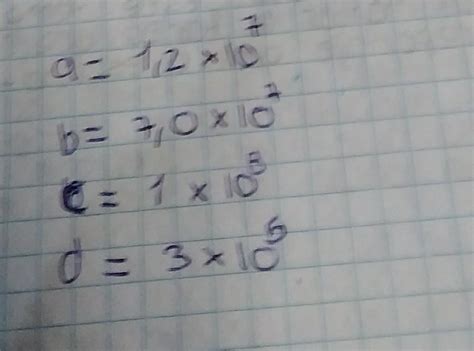 a = 1,2 × 10⁷
b = 7,0 × 10⁷
c = 1 × 10³
d = 3 × 10⁵